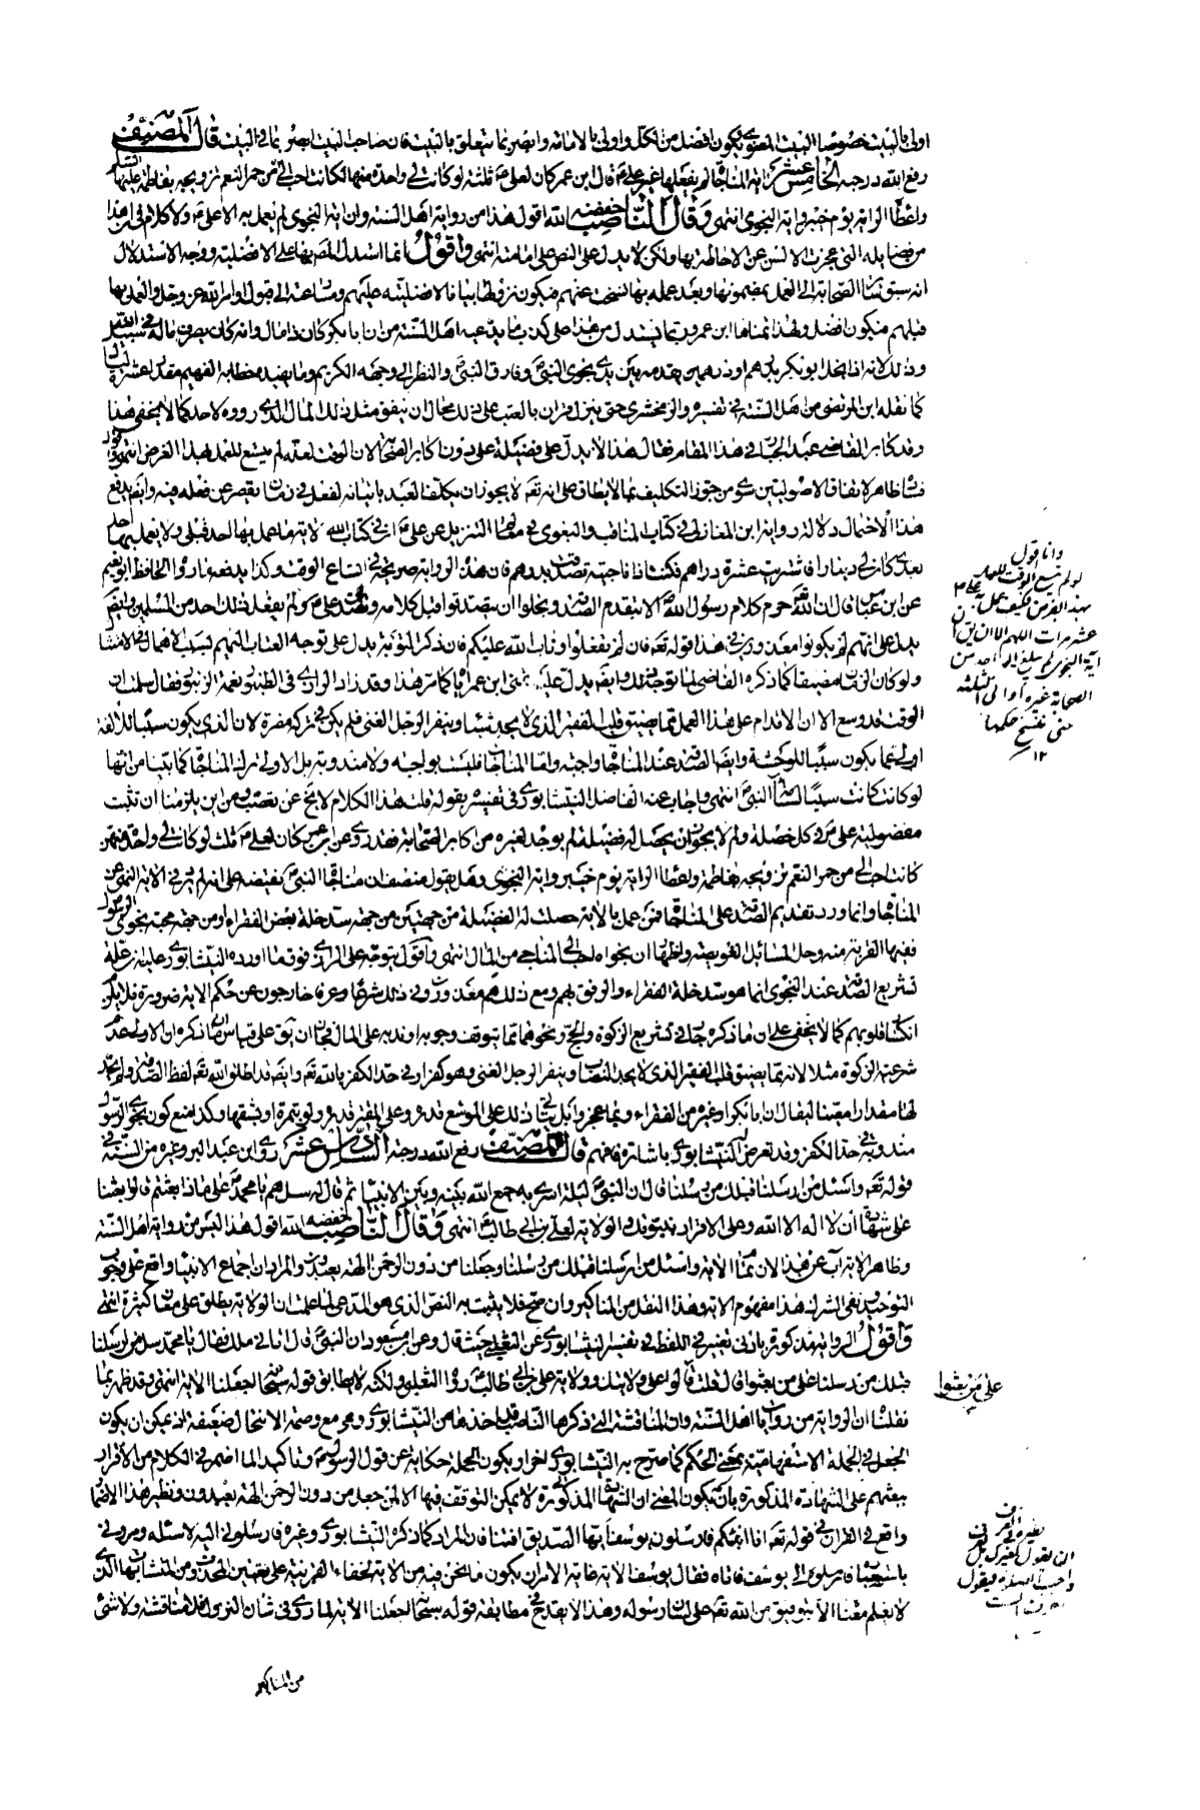 اولى بالبيت خصوصا البيت المعنوي يكون افضل من الكل واولى بالامامة وابصر بما يتعلق بالبيت فان صاحب البيت ابصر بما في البيت قال المصنف
رفع الله درجته الخامس عشر اية المناجاة لم يفعلها غير علي ع قال ابن عمر كان لعلي ع ثلثة لو كانت لي واحدة منها لكانت احب الي من حمر النعم تزويجه بفاطمة عليها السلم
واعطاء الراية يوم خيبر واية النجوى انتهى وقال الناصب خفضه الله اقول هذا من رواية اهل السنة وان اية النجوى لم يعمل به الا علي ع ولا كلام في ان هذا
من فضايله التي عجزت الالسن عن الاحاطة بها ولكن لا يدل على النص على امامته انتهى واقول انما استدل المص بها على الافضلية ووجه الاستدلال
انه سبق سائر الصحابة الى العمل بمضمونها وبعد عمله بها نسخت عنهم فيكون نزولها بيانا لافضليته عليهم ومسارعته الى قبول اوامر الله عز وجل والعمل بها
قبلهم فيكون افضل ولهذا تمناها ابن عمر وربما يستدل من هذا على كذب ما يدعيه اهل السنة من ان ابا بكر كان ذا مال وانه كان يصرف ماله في سبيل الله
وذلك لانه اذا بخل ابو بكر بدرهم او درهمين يقدمه بين يدي نجوى النبي ص وفارق النبي ص والنظر الى وجهه الكريم وما يفيد مخاطبة الفهيم مقدار عشرة ليال
كما نقله ابن المرتضى من اهل السنة في تفسيره والزمخشري حتى ينزل قران بالعتب على ذلك محال ان ينفق مثل ذلك المال الذي رووه لاحد كما لا يخفى هذا
وقد كابر القاضي عبد الجبار في هذا المقام فقال هذا لا يدل على فضيلة علي دون اكابر الصحابة لان الوقت لعله لم يتسع للعمل بهذا الغرض انتهى وهو
فساد ظاهر لاتفاق الاصوليين سوى من جوز التكليف بما لا يطاق على انه تعه لا يجوز ان يكلف العبد باتيانه لفعل في زمان يقصر عن فعله فيه وايضا يدفع
هذا الاحتمال دلالة رواية ابن المغازلي في كتاب المناقب والبغوي في معالم التنزيل عن علي ع ان في كتاب الله لاية ما عمل بها احد قبلي ولا يعمل بها احد
بعدي كان لي دينار فاشتريت عشرة دراهم فكنت اذا ناجيته تصدقت بدرهم فان هذه الرواية صريحة في اتساع الوقت وكذا يدفعه ما رواه الحافظ ابو نعيم
عن ابن عباس قال ان الله تعه حرم كلام رسول الله ص الا بتقدم الصدقة وبخلوا ان يتصدقوا قبل كلامه وتصدق علي ع ولم يفعل ذلك احد من المسلمين وايضا
يدل على انهم لم يكونوا معذورين في هذا قوله تعه فان لم تفعلوا وتاب الله عليكم فان ذكر التوبة يدل على توجه العتاب اليهم بسبب الاهمال في الامتثال
ولو كان الزمان مضيقا كما ذكره القاضي لما توجه ذلك وايضا يدل عليه تمنى ابن عمر اياها كما مر هذا وقد زاد الرازي في الطنبور نغمة الزنبور فقال سلمنا ان
الوقت قد وسع الا ان الاقدام على هذا العمل مما يضيق قلب الفقير الذي لا يجد شيئا وينفر الرجل الغني فلم يكن في تركه مضرة لان الذي يكون سببا للالفة
اولى عما يكون سببا للوحشة وايضا الصدقة عند المناجاة واجبة واما المناجاة فليست بواجبة ولا مندوبة بل الاولى ترك المناجاة كما بينا من انها
لو كانت كانت سببا لسامة النبي ص انتهى واجاب عنه الفاضل النيشابوري في تفسيره بقوله قلت هذا الكلام لا يخ عن تعصب ومن اين يلزمنا ان نثبت
مفضولية علي ع في كل خصلة ولم لا يجوز ان يحصل له فضيلة لم يوجد لغيره من اكابر الصحابة فقد روي عن ابن عمر كان لعلي ع ثلث لو كانت لي واحدة منهن
كانت احب الي من حمر النعم تزويجه بفاطمة واعطاء الراية يوم خيبر واية النجوى وهل يقول منصف ان مناجاة النبي ص نقيصة على انه لم يرد في الاية النهي عن
المناجاة وانما ورد تقديم الصدقة على المناجاة فمن عمل بالاية حصلت له الفضيلة من جهتين من جهة سد خلة بعض الفقراء ومن جهة محبة نجوى الرسول
ففيها القربة منه وحل المسائل العويصة واظهار ان نجواه احب الى المناجي من المال انتهى واقول يتوجه على الرازي فوق ما اورده النيشابوري عليه ان علة
تشريع الصدقة عند النجوى انما هو سد خلة الفقراء والرفق بهم ومع ذلك هم معذورون في ذلك شرعا وعرفا خارجون عن حكم الاية ضرورة فلا يكون
انكسار قلوبهم كما لا يخفى على ان ما ذكره جار في تشريع الزكوة والحج ونحوهما مما يتوقف وجوبه او ندبه على المال فجاز ان يق على قياس ما ذكره ان الاولى عدم
شرعية الزكوة مثلا لانه مما يضيق قلب الفقير الذي لا يجد النصاب وينفر الرجل الغني وهو كفر او في حد الكفر بالله تعه وايضا قد اطلق الله تعه لفظ الصدقة ولم يحد
لها مقدارا معينا ليقال ان ابا بكر او غيره من الفقراء ربما عجزوا بل شان ذلك على الموسع قدره وعلى المقتر قدره ولو بتمرة او بشقها وكذا منع كون نجوى الرسول
مندوبة في حد الكفر وقد تعرض له النيشابوري باشارة فافهم قال المصنف رفع الله درجته السادس عشر روى ابن عبد البر وغيره من السنة في
قوله تعه واسئل من ارسلنا قبلك من رسلنا قال ان النبي ص ليلة اسري به جمع الله بينه وبين الانبياء ثم قال له سلهم يا محمد على ماذا بعثتم قالوا بعثنا
على شهادة ان لا اله الا الله وعلى الاقرار بنبوتك والولاية لعلي بن ابي طالب ع انتهى وقال الناصب خفضه الله اقول هذا ليس من رواية اهل السنة
وظاهر الاية اب عن هذا لان تمام الاية واسئل من ارسلنا قبلك من رسلنا اجعلنا من دون الرحمن الهة يعبدون والمراد ان اجماع الانبياء واقع على وجوب
التوحيد ونفي الشرك هذا مفهوم الاية وهذا النقل من المناكير وان صح فلا يثبت به النص الذي هو المدعى لما علمت ان الولاية يطلق على معان كثيرة انتهى
واقول الرواية مذكورة بادنى تغيير في اللفظ في تفسير النيشابوري عن الثعلبي حيث قال وعن ابن مسعود ان النبي ص قال اتاني ملك فقال يا محمد سل من ارسلنا
قبلك من رسلنا على من بعثوا قال قلت على م قالوا على ولايتك وولاية علي بن ابي طالب ع رواه الثعلبي ولكنه لا يطابق قوله سبحانه اجعلنا الاية انتهى وقد ظهر بما
نقلنا ان الرواية من روايات اهل السنة وان المناقشة التي ذكرها الناصب قد اخذها من النيشابوري وهي مع وصمة الانتحال ضعيفة اذ يمكن ان يكون
الجعل في الجملة الاستفهامية بمعنى الحكم كما صرح به النيشابوري اخرا ويكون الجملة حكاية عن قول الرسول ص وتاكيدا لما اضمر في الكلام من الاقرار
ببعثهم على الشهادة المذكورة بان يكون المعنى ان الشهادة المذكورة لا يمكن التوقف فيها الا لمن جعل من دون الرحمن الهة يعبدون ونظير هذا الاضمار
واقع في القران في قوله تعه انا انبئكم فارسلون يوسف ايها الصديق افتنا فان المراد كما ذكره النيشابوري وغيره فارسلوني اليه لاسئله ومروني
باستعباره فارسلوه الى يوسف فاتاه فقال يوسف الاية غاية الامر ان يكون ما نحن فيه من الاية لخفاء القرينة على تعيين المحذوف من المتشابهات التي
لا يعلم معناها الا بتوفيق من الله تعه على لسان رسوله وهذا لا يقدح في مطابقة قوله سبحانه اجعلنا الاية لما روي في شان النزول فلا مناقشة ولا شيء
من المناكير
وانا اقول
لو لم يتسع الوقت للعمل
بهذا الفرض فكيف عمل به علي ع
عشر مرات اللهم الا ان يق ان
اية النجوى لم يبلغ الى احد من
الصحابة غيره او الى الثلثة
حتى نسخ حكمها
١٢
على من بعثوا